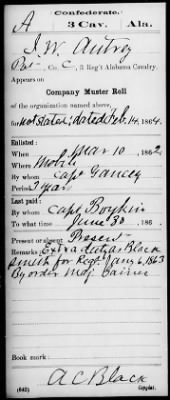 Confederate.
A 3 Cav. Ala.
J. W. Autrey
Pvt, Co. C, 3 Reg't Alabama Cavalry.
Appears on
Company Muster Roll
of the organization named above,
for not stated; dated Feb. 14, 1864.
Enlisted:
When Mar 10, 1862
Where Mobile
By whom Capt
Period 3 years
Last paid:
By whom Capt Boykin
To what time June 30, 186
Present or absent Present
Remarks: Extra duty as Black
smith for Regt Jany 6, 1863
By order Maj
Book mark:
A C Black
(642) Copyist.